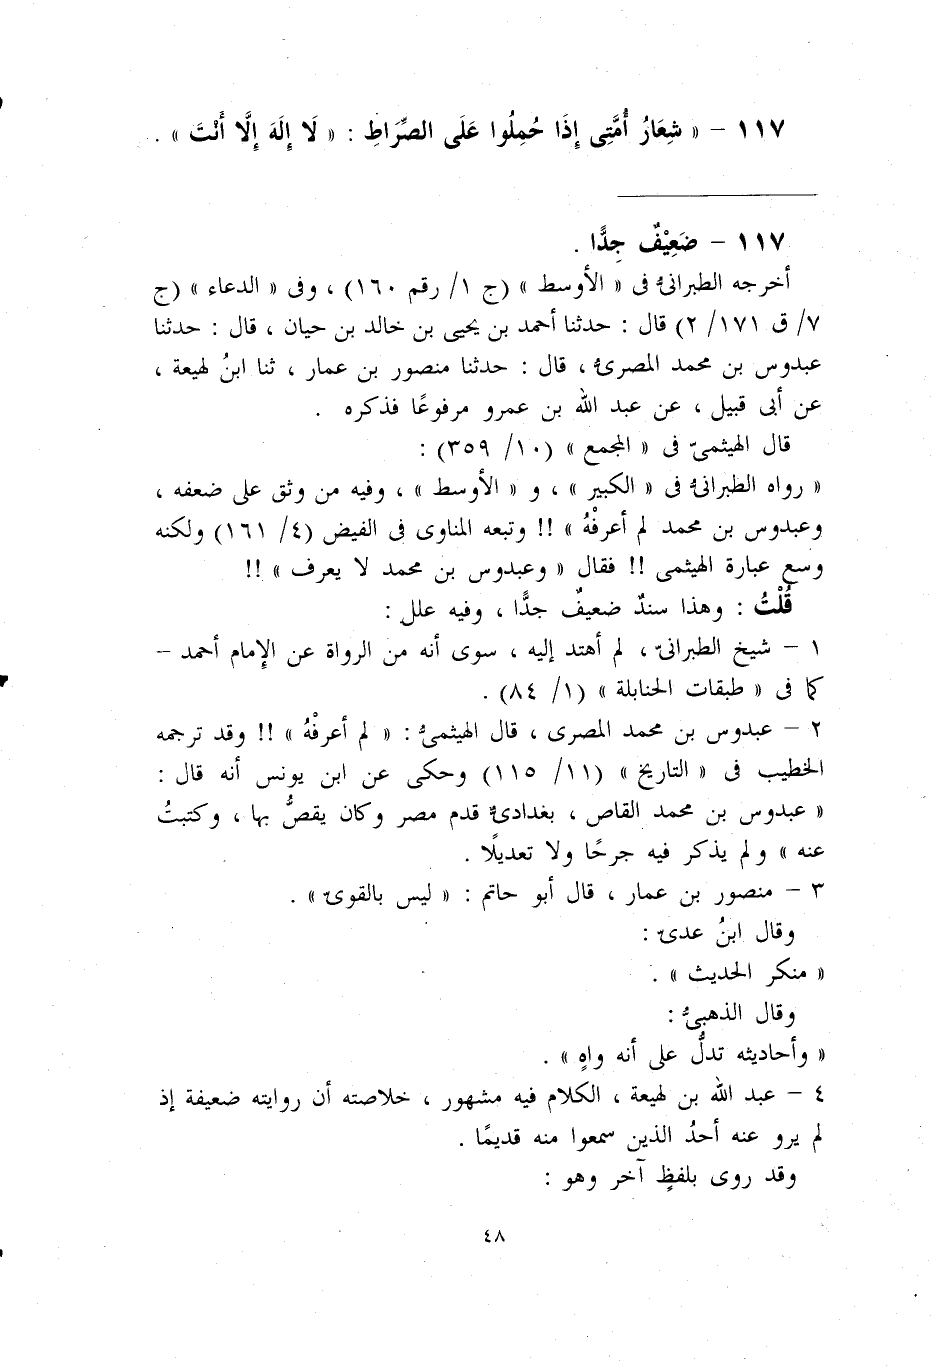 ١١٧ - « شِعَارُ أُمَّتِى إِذَا حُمِلُوا عَلَى الصِّرَاطِ : « لَا إِلَهَ إِلَّا أَنْتَ » .
١١٧ - ضَعِيْفٌ جِدًّا .
أخرجه الطبرانىُّ فى « الأوسط » (ج ١/ رقم ١٦٠) ، وفى « الدعاء » (ج
٧/ ق ١٧١/ ٢) قال : حدثنا أحمد بن يحيى بن خالد بن حيان ، قال : حدثنا
عبدوس بن محمد المصرىُّ ، قال : حدثنا منصور بن عمار ، ثنا ابنُ لهيعة ،
عن أبى قبيل ، عن عبد الله بن عمرو مرفوعًا فذكره .
قال الهيثمىّ فى « المجمع » (١٠/ ٣٥٩) :
« رواه الطبرانىُّ فى « الكبير » ، و « الأوسط » ، وفيه من وثق على ضعفه ،
وعبدوس بن محمد لم أعرفْهُ » !! وتبعه المناوى فى الفيض (٤/ ١٦١) ولكنه
وسع عبارة الهيثمى !! فقال « وعبدوس بن محمد لا يعرف » !!
قُلْتُ : وهذا سندٌ ضعيفٌ جدًّا ، وفيه علل :
١ - شيخ الطبرانىّ ، لم أهتد إليه ، سوى أنه من الرواة عن الإمام أحمد -
كما فى « طبقات الحنابلة » (١/ ٨٤) .
٢ - عبدوس بن محمد المصرى ، قال الهيثمىُّ : « لم أعرفْهُ » !! وقد ترجمه
الخطيب فى « التاريخ » (١١/ ١١٥) وحكى عن ابن يونس أنه قال :
« عبدوس بن محمد القاص ، بغدادىٌّ قدم مصر وكان يقصُّ بها ، وكتبتُ
عنه » ولم يذكر فيه جرحًا ولا تعديلًا .
٣ - منصور بن عمار ، قال أبو حاتم : « ليس بالقوىّ » .
وقال ابنُ عدىّ :
« منكر الحديث » .
وقال الذهبىُّ :
« وأحاديثه تدلُّ على أنه واهٍ » .
٤ - عبد الله بن لهيعة ، الكلام فيه مشهور ، خلاصته أن روايته ضعيفة إذ
لم يرو عنه أحدُ الذين سمعوا منه قديمًا .
وقد روى بلفظٍ آخر وهو :
٤٨